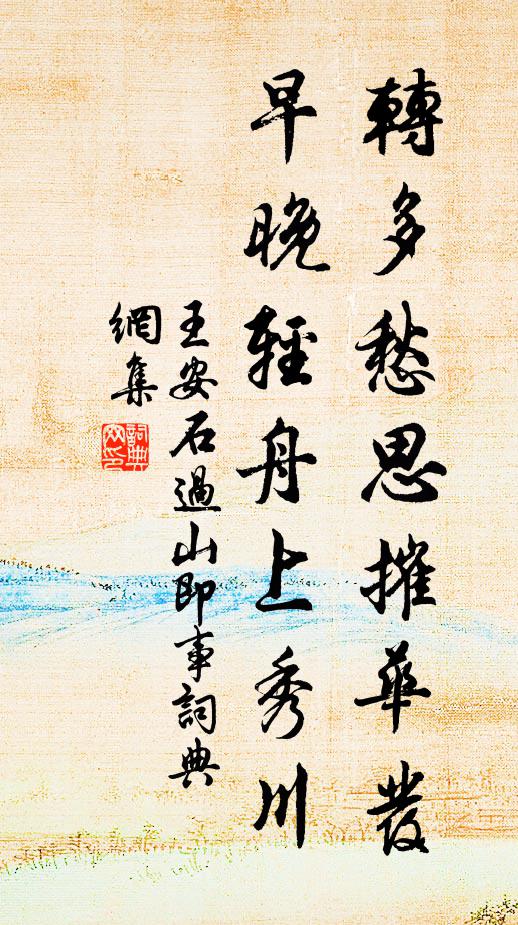 轉多愁思摧華發
早晚輕舟上秀川
王安石過山即事詞典
網集
詞典